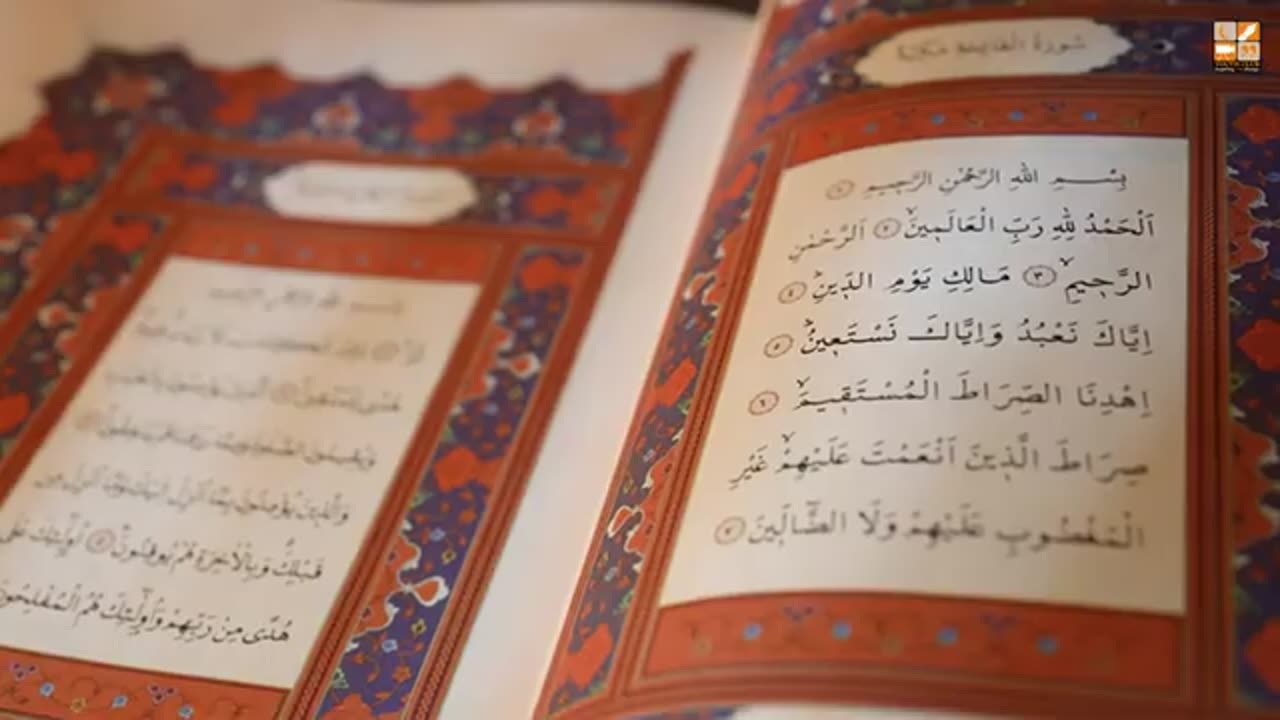 سورة الفاتحة مكية
بِسْمِ اللهِ الرَّحْمٰنِ الرَّحِيمِ ﴿١﴾
اَلْحَمْدُ لِلهِ رَبِّ الْعَالَمِينَ ﴿٢﴾ اَلرَّحْمٰنِ
الرَّحِيمِ ﴿٣﴾ مَالِكِ يَوْمِ الدِّينِ ﴿٤﴾
اِيَّاكَ نَعْبُدُ وَاِيَّاكَ نَسْتَعِينُ ﴿٥﴾
اِهْدِنَا الصِّرَاطَ الْمُسْتَقِيمَ ﴿٦﴾
صِرَاطَ الَّذِينَ اَنْعَمْتَ عَلَيْهِمْ غَيْرِ
الْمَغْضُوبِ عَلَيْهِمْ وَلَا الضَّالِّينَ ﴿٧﴾
وَالَّذِينَ يُؤْمِنُونَ بِمَا اُنْزِلَ اِلَيْكَ وَمَا اُنْزِلَ مِنْ
قَبْلِكَ وَبِالْاٰخِرَةِ هُمْ يُوقِنُونَ ﴿٤﴾ اُولٰئِكَ عَلٰى
هُدًى مِنْ رَبِّهِمْ وَاُولٰئِكَ هُمُ الْمُفْلِحُونَ